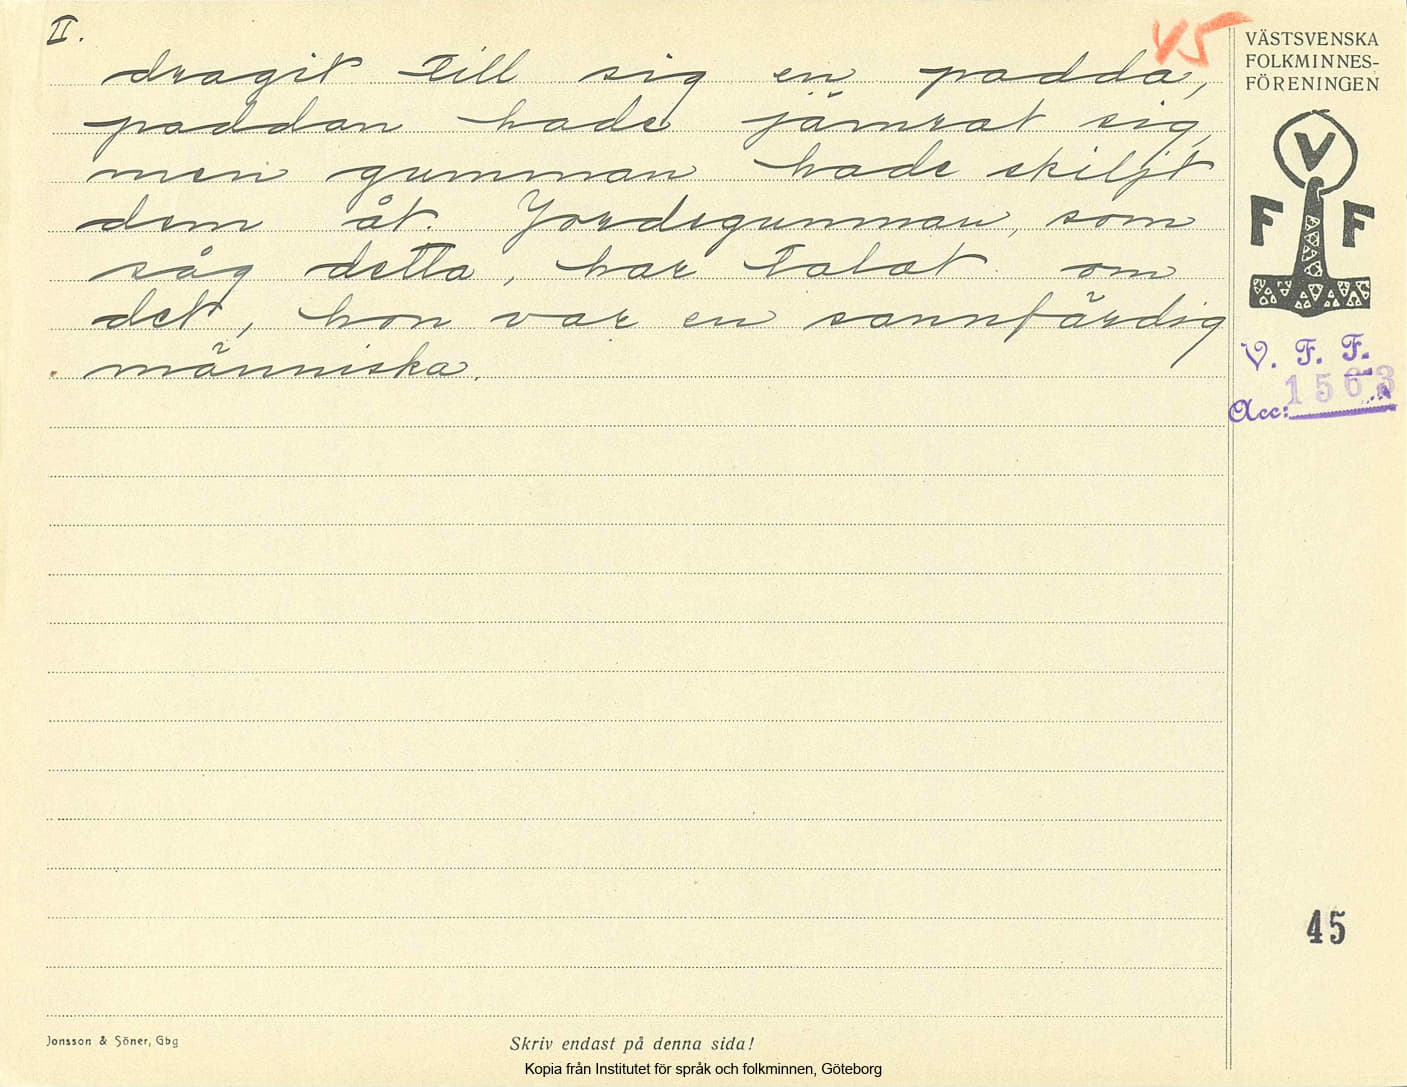 II.
45
dragit till sig en padda,
paddan hade jämrat sig,
men gumman hade skiljt
dem åt. Jordegumman, som
såg detta, har talat om
det, hon var en sannfärdig
människa.
VÄSTSVENSKA
FOLKMINNES-
FÖRENINGEN
V
F F
V. F. F.
Acc: 1563
45
Jonsson & Söner, Gbg
Skriv endast på denna sida!
Kopia från Institutet för språk och folkminnen, Göteborg